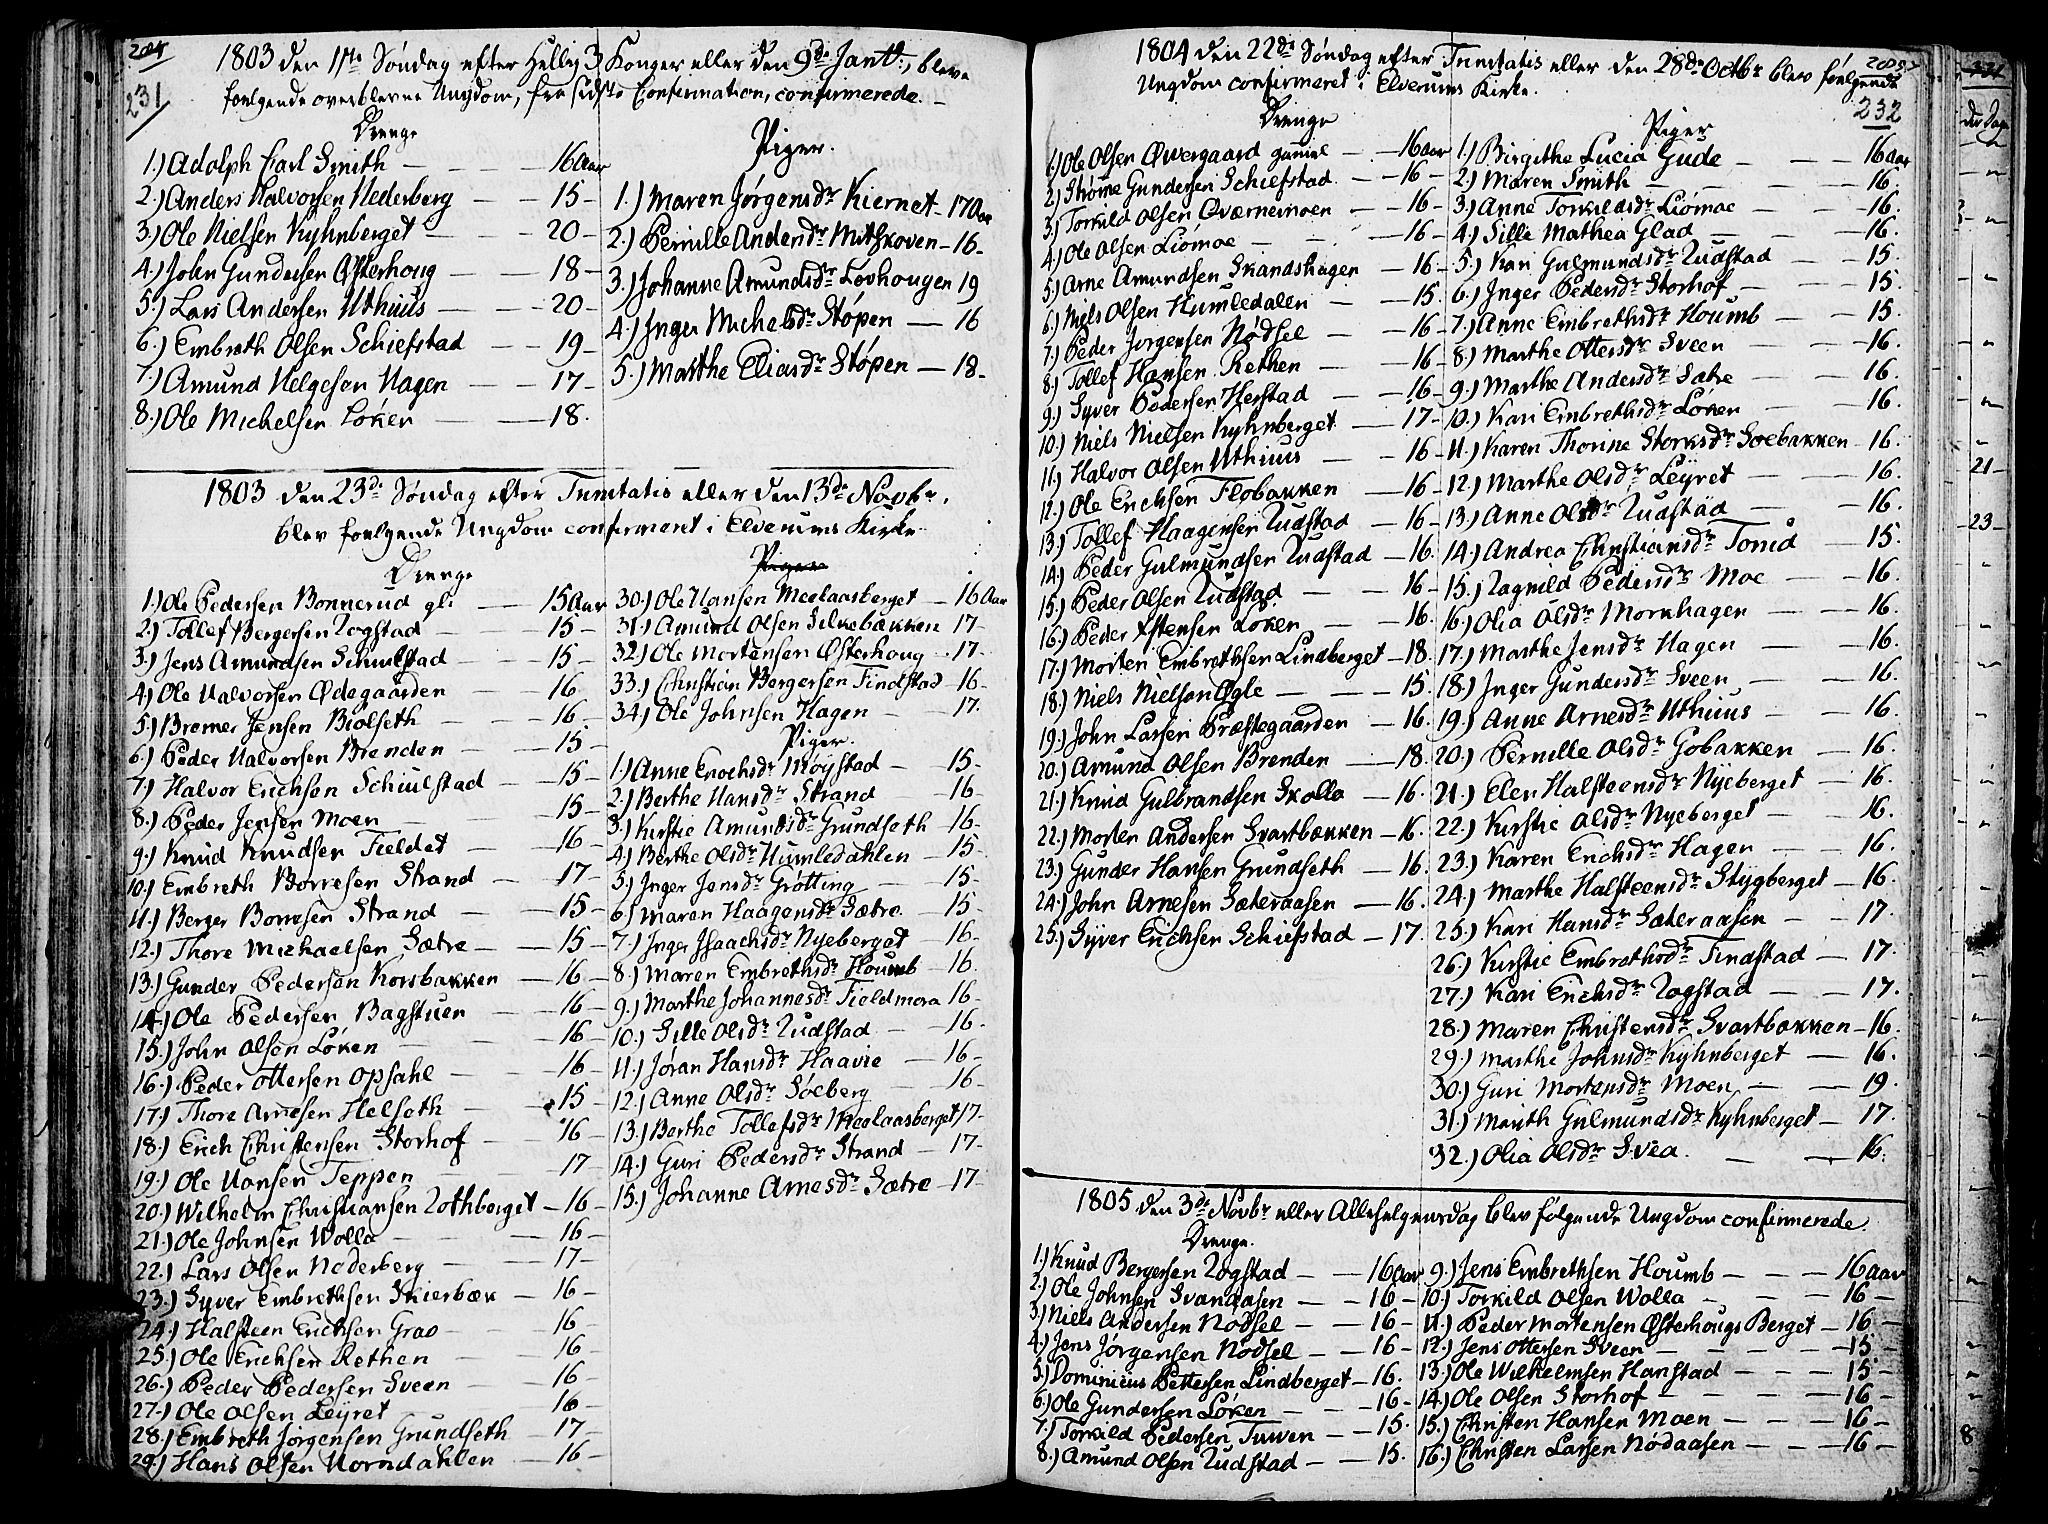 204
231
1803 den 1ste Søndag efter Hellig 3 Konger eller den 9de Janv:, bleve
følgende overblevne Ungdom, fra sidste Confirmation, confirmerede.
Drenge
1.) Adolph Carl Smith — 16 Aar
2.) Anders Halvorsen Nederberg — 15 -
3.) Ole Nielsen Kyhnberget — 20 -
4.) John Gundersen Østerhoug — 18 -
5.) Lars Andersen Uthuus — 20 -
6.) Embreth Olsen Schiefstad — 19 -
7.) Amund Helgesen Hagen — 17 -
8.) Ole Michelsen Løken — 18.
Piger.
1.) Maren Jørgensdr Kiernet - 17 Aar
2.) Pernille Andersdr Mitskoven - 16 -
3.) Johanne Amundsdr Løvhougen 19
4.) Inger Michelsdr Støpen — 16
5.) Marthe Eliasdr Støpen — 18 -
1803 den 23de Søndag efter Trinitatis eller den 13de Novbr.
blev følgende Ungdom confirmeret i Elverums Kirke.
Drenge
1.) Ole Pedersen Bonnerud gl: — 15 Aar
2.) Tollef Bergersen Rogstad — 15 -
3.) Jens Amundsen Schiulstad — 15 -
4.) Ole Halvorsen Ødegaarden — 16
5.) Bremer Jensen Biølseth — 16 -
6.) Peder Halvorsen Brenden — 15 -
7.) Halvor Erichsen Schiulstad — 15 -
8.) Peder Jensen Moen — 15 -
9.) Knud Knudsen Fieldet — 16 -
10.) Embreth Borresen Strand — 17 -
11.) Berger Borresen Strand — 15 -
12.) Thore Michaelsen Sætre — 15 -
13.) Gunder Pedersen Korsbakken — 16 -
14.) Ole Pedersen Bagstuen — 16 -
15.) John Olsen Løken — 16 -
16.) Peder Ottersen Opsahl — 16 -
17.) Thore Arnesen Helseth — 15 -
18.) Erich Christensen Storhof — 16 -
19.) Ole Hansen Teppen — 17 -
20.) Wilhelm Christiansen Rothberget — 16 -
21.) Ole Johnsen Wolla — 16 -
22.) Lars Olsen Nederberg — 17 -
23.) Syver Embrethsen Skierbæk — 16 -
24.) Halsteen Erichsen Grao — 16 -
25.) Ole Erichsen Rethen — 16 -
26.) Peder Pedersen Sveen — 16 -
27.) Ole Olsen Leyret — 16 -
28.) Embreth Jørgensen Grundseth — 17 -
29.) Hans Olsen Horndahlen — 16 -
Piger
30.) Ole Hansen Meelaasberget — 16 Aar
31.) Amund Olsen Silkebækken 17 -
32.) Ole Mortensen Østerhoug - 17 -
33.) Christian Bergersen Findstad - 16 -
34.) Ole Johnsen Hagen — 17.
Piger.
1.) Anne Enochsdr Møystad — 15 -
2.) Berthe Hansdr Strand — 16 -
3.) Kirstie Amundsdr Grundseth — 16 -
4.) Berthe Olsdr Humledahlen — 15 -
5.) Inger Jensdr Grøtting — 15 -
6.) Maren Haagensdr Sætre — 15 -
7.) Inger Isaachsdr Nyeberget — 16 -
8.) Maren Embrethsdr Houmb — 16.
9.) Marthe Johannesdr Fieldmora 16 -
10.) Sille Olsdr Rudstad — 16 -
11.) Jøran Hansdr Haavie — 16 -
12.) Anne Olsdr Søeberg — 16 -
13.) Berthe Tollefsdr Meelaasberget 17 -
14.) Guri Pedersdr Strand — 17 -
15.) Johanne Arnesdr Sætre — 17 -
1804 den 22de Søndag efter Trinitatis eller den 28de Octbr blev følgende
Ungdom confirmeret i Elverums Kirke.
232
Drenge
1.) Ole Olsen Øvergaard gamel — 16 Aar
2.) Størne Gundersen Schiefstad — 16 -
3.) Torkild Olsen Qværnemoen — 16 -
4.) Ole Olsen Liømoe — 16 -
5.) Arne Amundsen Skandshagen — 16 -
6.) Niels Olsen Humledalen — 15.
7.) Peder Jørgensen Nødsel — 16 -
8.) Tollef Hansen Rethen — 16
9.) Syver Pedersen Herstad — 16 -
10.) Niels Nielsen Kyhnberget — 17 -
11.) Halvor Olsen Uthuus — 16 -
12.) Ole Erichsen Flobakken — 16 -
13.) Tollef Haagensen Rudstad — 16 -
14.) Peder Gulmundsen Rudstad — 16.
15.) Peder Olsen Rudstad — 16 -
16.) Peder Østensen Løken — 16.
17.) Morten Embrethsen Lindberget — 18.
18.) Niels Nielsen Øgle — 15.
19.) John Larsen Præstegaarden — 16.
20.) Amund Olsen Brenden — 18.
21.) Knud Gulbrandsen Skolla — 16.
22.) Morten Andersen Svartbækken — 16.
23.) Gunder Hansen Grundseth — 16.
24.) John Arnesen Sæteraasen — 16.
25.) Syver Erichsen Schiefstad — 17.
Piger
1.) Birgithe Lucia Gude — 16 Aar
2.) Maren Smith — 16
3.) Anne Torkildsdr Liømoe — 16.
4.) Sille Mathea Glad — 16.
5.) Kari Gulmundsdr Rudstad — 15.
6.) Inger Pedersdr Storhof — 15.
7.) Anne Embrethsdr Houmb — 15.
8.) Marthe Ottersdr Sveen — 16.
9.) Marthe Andersdr Satre — 16.
10.) Kari Embrethsdr Løken — 16.
11.) Karen Thorine Storksdr Soebakken — 16.
12.) Marthe Olsdr Leyret — 16.
13.) Anne Olsdr Rudstad — 16.
14.) Andrea Christiansdr Tonid — 15.
15.) Ragnild Pedersdr Moe — 16.
16.) Olia Olsdr Mornhagen — 16.
17.) Marthe Jensdr Hagen — 16.
18.) Inger Gundersdr Sveen — 16.
19.) Anne Arnesdr Uthuus — 16.
20.) Pernille Olsdr Gobakken — 16.
21.) Elen Halsteensdr Nyeberget — 16.
22.) Kirstie Olsdr Nyeberget — 16.
23.) Karen Erichsdr Hagen — 16.
24.) Marthe Halsteensdr Stygberget — 16.
25.) Kari Hansdr Sæteraasen — 17.
26.) Kirstie Embrethsdr Findstad — 17.
27.) Kari Erichsdr Rogstad — 17.
28.) Maren Christensdr Svartbækken — 16.
29.) Marthe Johnsdr Kyhnberget — 16.
30.) Guri Mortensdr Moen — 19.
31.) Marith Gulmundsdr Kyhnberget — 17.
32.) Olia Olsdr Svea. — 16.
1805 den 3de Novbr eller Allehelgensdag blev følgende Ungdom confirmerede.
Drenge.
1.) Knud Bergersen Rogstad — 16 Aar
2.) Ole Johnsen Svenaasen — 16 -
3.) Niels Andersen Nødsel — 16 -
4.) Jens Jørgensen Nødsel — 16 -
5.) Dominicus Pettersen Lindberget — 16.
6.) Ole Gundersen Løken — 16 -
7.) Torkild Pedersen Tuven — 15.
8.) Amund Olsen Rudstad — 15.
9.) Jens Embrethsen Houmb — 16 Aar
10.) Torkild Olsen Wolla — 16 -
11.) Peder Mortensen Østerhougs Berget — 16 -
12.) Jens Ottersen Sveen — 15 -
13.) Ole Wilhelmsen Hanstad — 15 -
14.) Ole Olsen Storhof — 16 -
15.) Christen Hansen Moen — 16 -
16.) Christen Larsen Nødaasen — 16 -
21 -
23 -
8